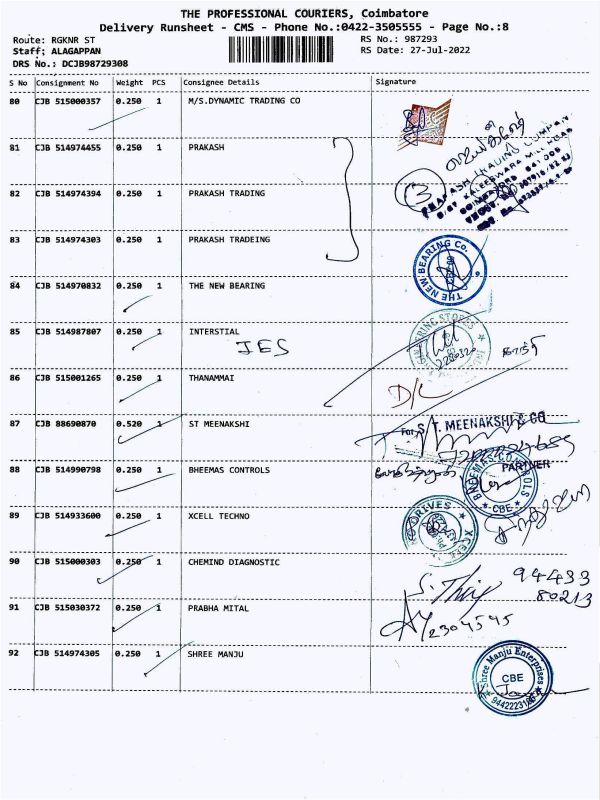 THE PROFESSIONAL COURIERS, Coimbatore
Delivery Runsheet - CMS - Phone No.:0422-3505555 - Page No.:8
Route: RGKNR ST
RS No.: 987293
Staff; ALAGAPPAN
RS Date: 27-Jul-2022
DRS No.: DCJB98729308
S No Consignment No Weight PCS Consignee Details Signature
80 CJB 515000357 0.250 1 M/S.DYNAMIC TRADING CO
81 CJB 514974455 0.250 1 PRAKASH
3
PRAKASH TRADING COMPANY
82 CJB 514974394 0.250 1 PRAKASH TRADING
83 CJB 514974303 0.250 1 PRAKASH TRADEING
THE NEW BEARING Co.
84 CJB 514970832 0.250 1 THE NEW BEARING
85 CJB 514987807 0.250 1 INTERSTIAL
IES
86 CJB 515001265 0.250 1 THANAMMAI
D/L
87 CJB 88690870 0.520 1 ST MEENAKSHI
For S.T. MEENAKSHI & CO
PARTNER
88 CJB 514990798 0.250 1 BHEEMAS CONTROLS
BHEEMAS CONTROLS
CBE
89 CJB 514933600 0.250 1 XCELL TECHNO
90 CJB 515000303 0.250 1 CHEMIND DIAGNOSTIC
94433
80213
91 CJB 515030372 0.250 1 PRABHA MITAL
2304545
92 CJB 514974305 0.250 1 SHREE MANJU
Shree Manju Enterprises
CBE